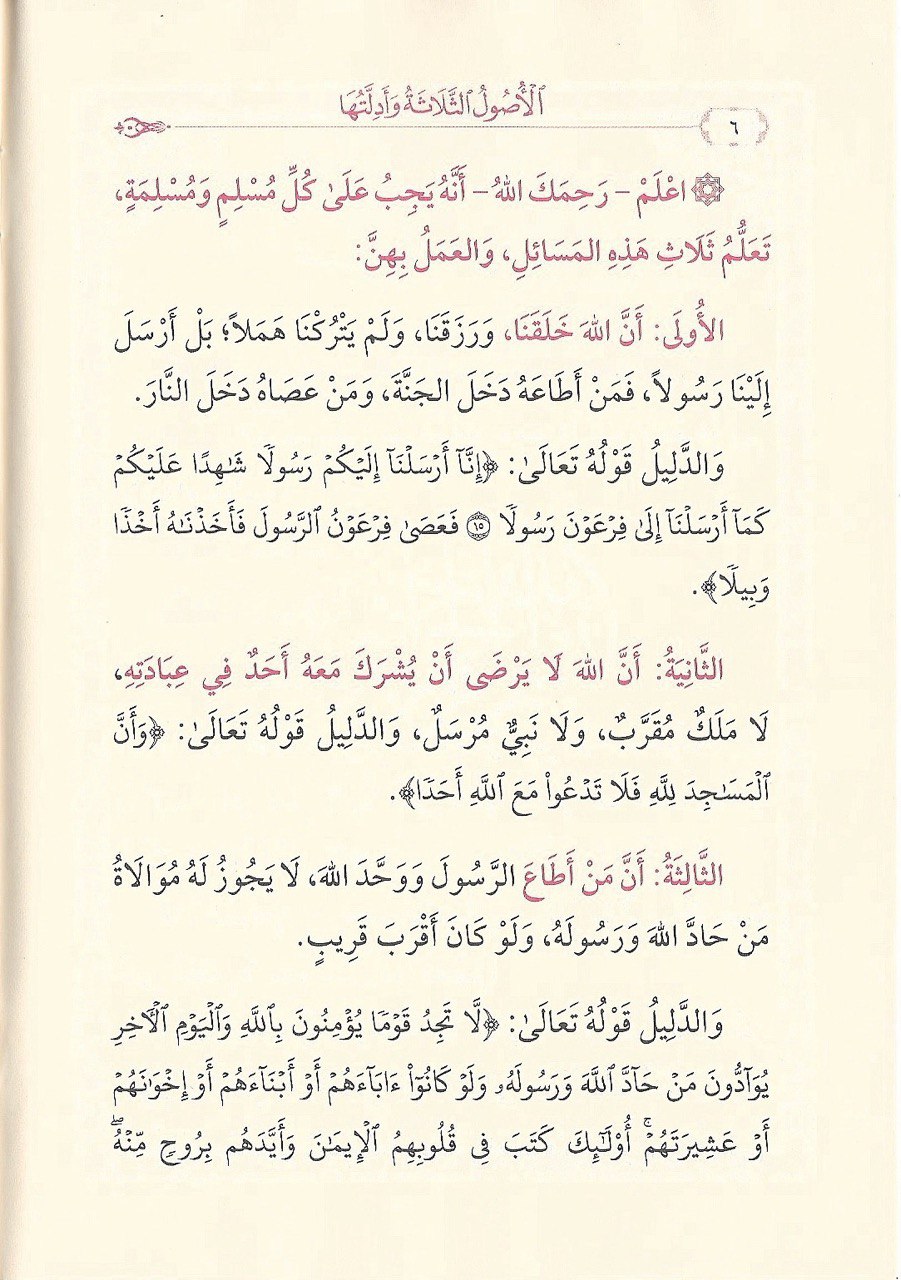 الْأُصُولُ الثَّلَاثَةُ وَأَدِلَّتُهَا
٦
اعْلَمْ - رَحِمَكَ اللهُ - أَنَّهُ يَجِبُ عَلَىٰ كُلِّ مُسْلِمٍ وَمُسْلِمَةٍ،
تَعَلُّمُ ثَلَاثِ هَذِهِ المَسَائِلِ، وَالعَمَلُ بِهِنَّ:
الأُولَى: أَنَّ اللهَ خَلَقَنَا، وَرَزَقَنَا، وَلَمْ يَتْرُكْنَا هَمَلاً؛ بَلْ أَرْسَلَ
إِلَيْنَا رَسُولاً، فَمَنْ أَطَاعَهُ دَخَلَ الجَنَّةَ، وَمَنْ عَصَاهُ دَخَلَ النَّارَ.
وَالدَّلِيلُ قَوْلُهُ تَعَالَىٰ: ﴿إِنَّآ أَرۡسَلۡنَآ إِلَيۡكُمۡ رَسُولٗا شَٰهِدًا عَلَيۡكُمۡ
كَمَآ أَرۡسَلۡنَآ إِلَىٰ فِرۡعَوۡنَ رَسُولٗا ١٥ فَعَصَىٰ فِرۡعَوۡنُ ٱلرَّسُولَ فَأَخَذۡنَٰهُ أَخۡذٗا
وَبِيلٗا﴾.
الثَّانِيَةُ: أَنَّ اللهَ لَا يَرْضَى أَنْ يُشْرَكَ مَعَهُ أَحَدٌ فِي عِبَادَتِهِ،
لَا مَلَكٌ مُقَرَّبٌ، وَلَا نَبِيٌّ مُرْسَلٌ، وَالدَّلِيلُ قَوْلُهُ تَعَالَىٰ: ﴿وَأَنَّ
ٱلۡمَسَٰجِدَ لِلَّهِ فَلَا تَدۡعُواْ مَعَ ٱللَّهِ أَحَدٗا﴾.
الثَّالِثَةُ: أَنَّ مَنْ أَطَاعَ الرَّسُولَ وَوَحَّدَ اللهَ، لَا يَجُوزُ لَهُ مُوَالَاةُ
مَنْ حَادَّ اللهَ وَرَسُولَهُ، وَلَوْ كَانَ أَقْرَبَ قَرِيبٍ.
وَالدَّلِيلُ قَوْلُهُ تَعَالَىٰ: ﴿لَّا تَجِدُ قَوۡمٗا يُؤۡمِنُونَ بِٱللَّهِ وَٱلۡيَوۡمِ ٱلۡأٓخِرِ
يُوَآدُّونَ مَنۡ حَآدَّ ٱللَّهَ وَرَسُولَهُۥ وَلَوۡ كَانُوٓاْ ءَابَآءَهُمۡ أَوۡ أَبۡنَآءَهُمۡ أَوۡ إِخۡوَٰنَهُمۡ
أَوۡ عَشِيرَتَهُمۡۚ أُوْلَٰٓئِكَ كَتَبَ فِي قُلُوبِهِمُ ٱلۡإِيمَٰنَ وَأَيَّدَهُم بِرُوحٖ مِّنۡهُۖ